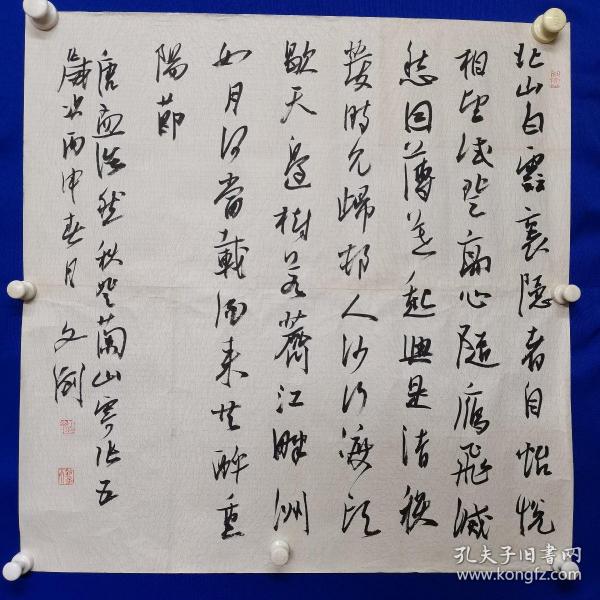 北山白雲裏隱者自怡悅
相望試登高心隨鴈飛滅
愁因薄暮起興是清秋
發時見歸邨人沙行渡頭
歇天邊樹若薺江畔洲
如月何當載酒來共醉重
陽節
唐孟浩然秋登蘭山寄張五
歲次丙申春月 文
孔夫子旧书网
www.kongfz.com